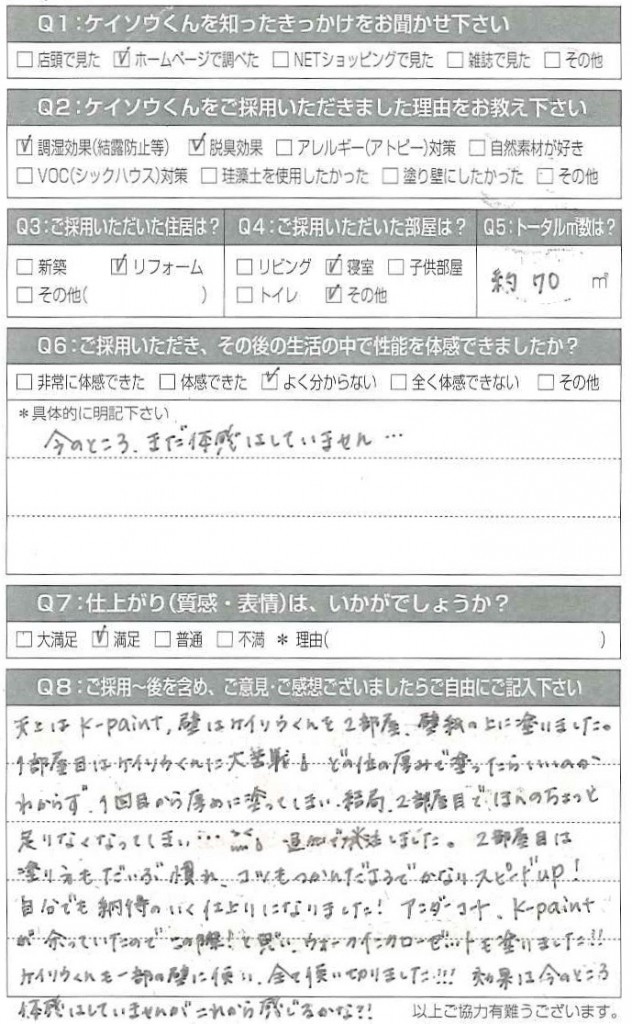 Q1:ケイソウくんを知ったきっかけをお聞かせ下さい
□店頭で見た ☑ホームページで調べた □NETショッピングで見た □雑誌で見た □その他
Q2:ケイソウくんをご採用いただきました理由をお教え下さい
☑調湿効果(結露防止等) ☑脱臭効果 □アレルギー(アトピー)対策 □自然素材が好き
□VOC(シックハウス)対策 □珪藻土を使用したかった □塗り壁にしたかった □その他
Q3:ご採用いただいた住居は? Q4:ご採用いただいた部屋は? Q5:トータル㎡数は?
□新築 ☑リフォーム □リビング ☑寝室 □子供部屋 約70㎡
□その他( ) □トイレ ☑その他
Q6:ご採用いただき、その後の生活の中で性能を体感できましたか?
□非常に体感できた □体感できた ☑よく分からない □全く体感できない □その他
*具体的に明記下さい
今のところ、まだ体感はしていません…
Q7:仕上がり(質感・表情)は、いかがでしょうか?
□大満足 ☑満足 □普通 □不満 *理由( )
Q8:ご採用〜後を含め、ご意見・ご感想ございましたらご自由にご記入下さい
天上はK-paint,壁はケイソウくんを2部屋、壁紙の上に塗りました。
1部屋目はケイソウくんに大苦戦! どの位の厚みで塗ったらいいのか
わからず、1回目から厚めに塗ってしまい、結局、2部屋目で、ほんのちょっと
足りなくなってしまい… 追加で発注しました。2部屋目は
塗り方もだいぶ慣れ、コツもつかんだようでかなりスピードup!
自分でも納得のいく仕上りになりました! アンダーコート、K-paint
が余っていたのでこの際!と思い、ウォークインクローゼットも塗りました!!
ケイソウくんも一部の壁に使い、全て使い切りました!!! 効果は今のところ
体感はしていませんがこれから感じるかな?!
以上ご協力有難うございます。